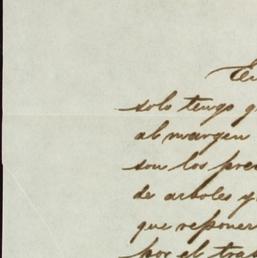 En
solo tengo q
al margen
son los prec
de arboles y
que reponer
por el tras